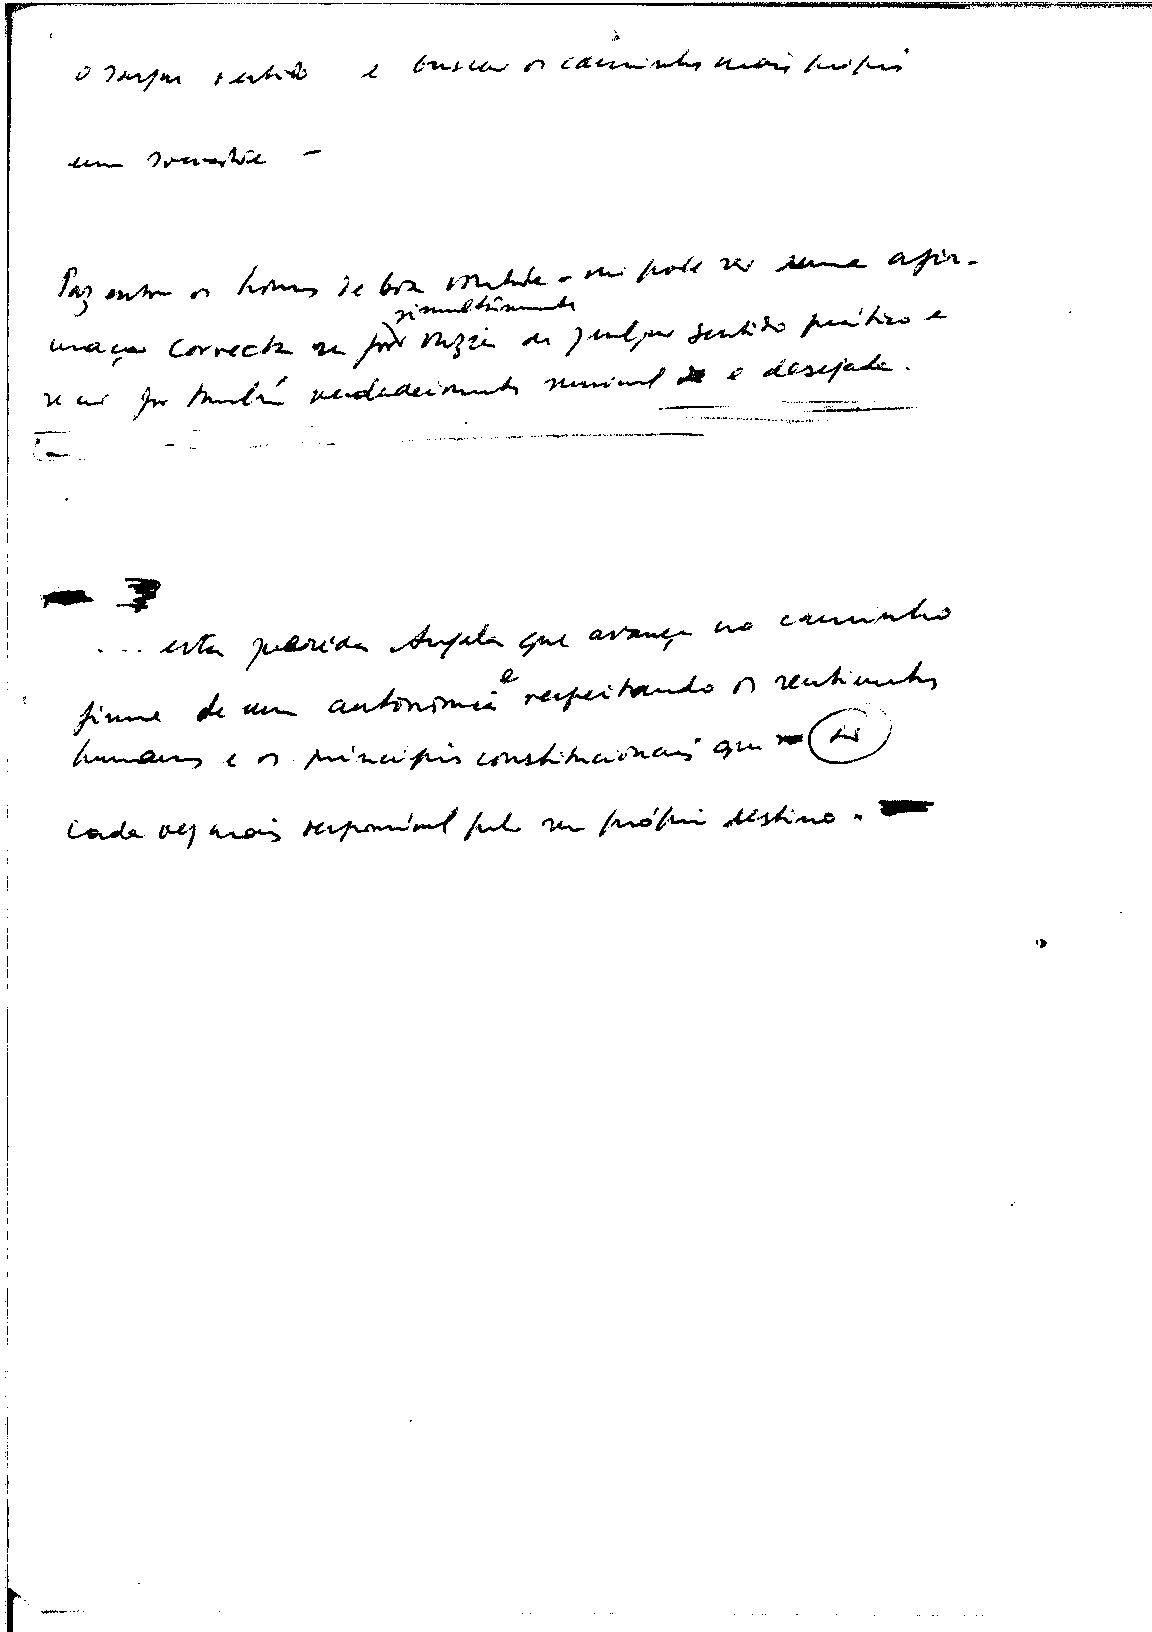 o sangue vertido e buscar os caminhos mais própri
um
Paz entre os homens de boa vontade - não pode ser uma afir-
mação correcta se por simultâneamente de qualquer sentido prático e
se não for também verdadeiramente e desejada.
... esta querida Angola que avança no caminho
firme de uma autonomia e respeitando os sentimentos
humanos e os princípios constitucionais que
cada vez mais responsável pelo seu próprio destino.